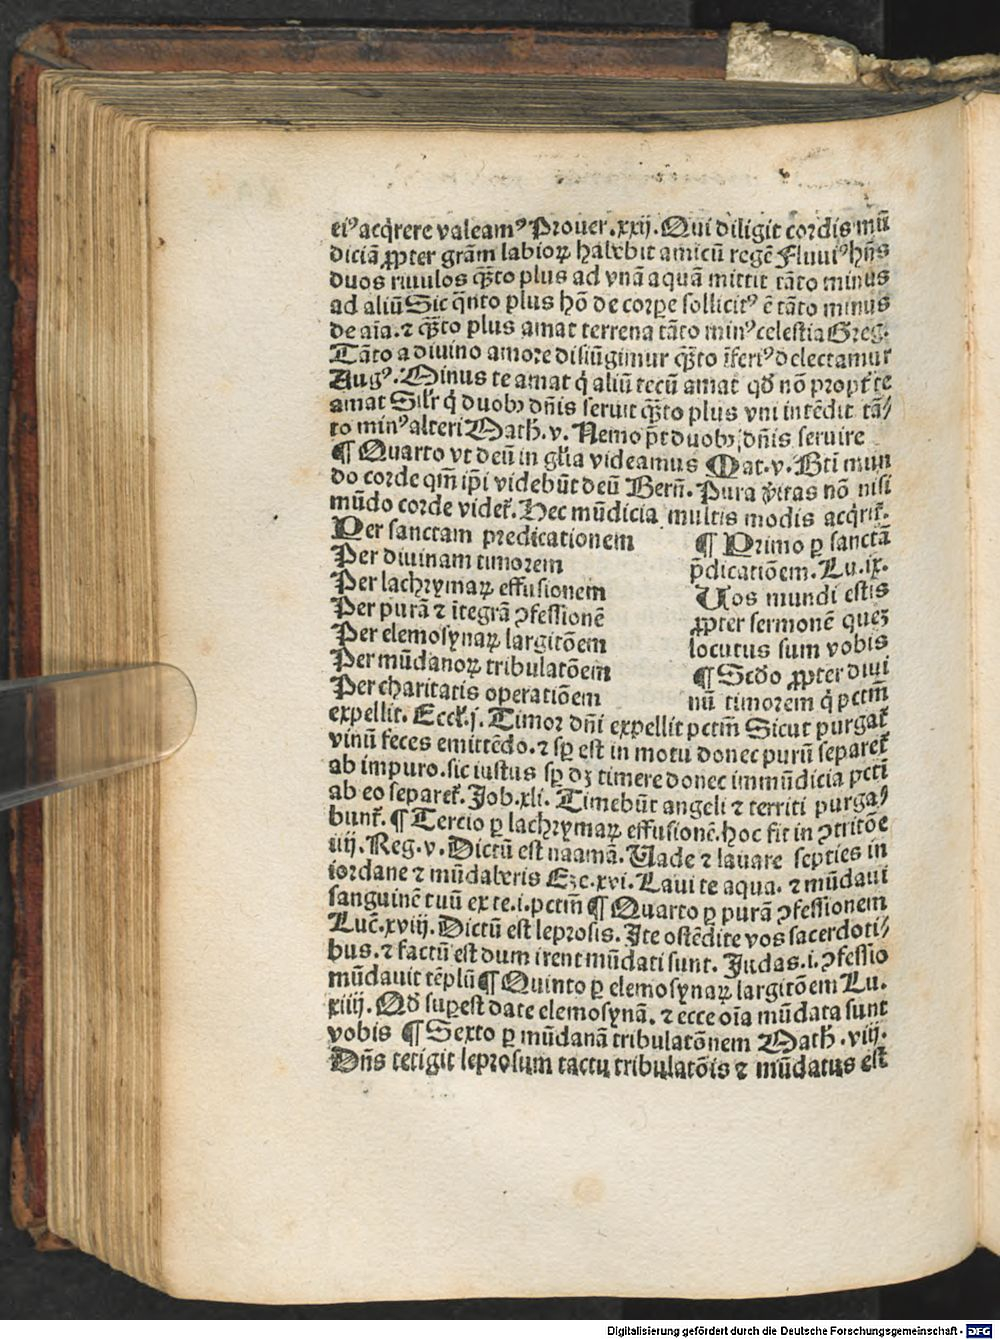 eiꝰ acq̃rere valeamꝰ Prouer.xxij. Qui diligit cordis mũ
diciã ꝓpter grãm labioꝝ habebit amicũ regẽ Fluuiꝰ hñs
duos riuulos q̃sto plus ad vnã aquã mittit tãto minus
ad aliũ Sic q̃nto plus hõ de corpe sollicitꝰ ẽ tãto minus
de aĩa. ⁊ q̃sto plus amat terrena tãto minꝰ celestia Greg.
Tãto a diuino amore disiũgimur q̃sto ĩferiꝰ delectamur
Augꝰ. Minus te amat q̇ aliũ tecũ amat qđ nõ propt̃ te
amat Silr̃ q̇ duobꝫ dñis seruit q̃sto plus vni intẽdit tã⸗
to minꝰ alteri Math.v. Nemo p̃t duobꝫ dñis seruire
¶ Quarto vt deũ in gl̃ia videamus Mat.v. Bt̃i mun
do corde qm̃ ip̃i videbũt deũ Berñ. Pura v̾itas nõ nisi
mũdo corde videt̃. Hec mũdicia multis modis acq̃rit̃.
Per sanctam predicationem
Per diuinam timorem
Per lachrymaꝝ effusionem
Per purã ⁊ ĩtegrã ꝯfessionẽ
Per elemosynaꝝ largitõem
Per mũdanoꝝ tribulatõem
Per charitatis operatiõem
¶ Primo ꝑ sanctã
p̃dicatiõem. Lu.ix.
Uos mundi estis
ꝓpter sermonẽ quez
locutus sum vobis
¶ Scđo ꝓpter diui
nũ timorem q̇ pctm̃
expellit. Eccl̃.j. Timor dñi expellit pctm̃ Sicut purgat̃
vinũ feces emittẽdo. ⁊ sꝑ est in motu donec purũ separet̃
ab impuro. sic iustus sꝑ dꝫ timere donec immũdicia pcti
ab eo separet̃. Job.xli. Timebũt angeli ⁊ territi purga⸗
bunt̃. ¶ Tercio ꝑ lachrymaꝝ effusionẽ. hoc fit in ꝯtritõe
iiij. Reg.v. Dictũ est naamã. Uade ⁊ lauare septies in
iordane ⁊ mũdaberis Eze.xvi. Laui te aqua. ⁊ mũdaui
sanguinẽ tuũ ex te.i.pctm̃ ¶ Quarto ꝑ purã ꝯfessionem
Luc̃.xviij. Dictũ est leprosis. Ite ostẽdite vos sacerdoti⸗
bus. ⁊ factũ est dum irent mũdati sunt. Judas.i. ꝯfessio
mũdauit tẽplũ ¶ Quinto ꝑ elemosynaꝝ largitõem Lu.
xiiij. Qđ suꝑest date elemosynã. ⁊ ecce oĩa mũdata sunt
vobis ¶ Sexto ꝑ mũdanã tribulatõnem Math̃.viij.
Dñs tetigit leprosum tactu tribulatõis ⁊ mũdatus est
Digitalisierung gefördert durch die Deutsche Forschungsgemeinschaft - DFG